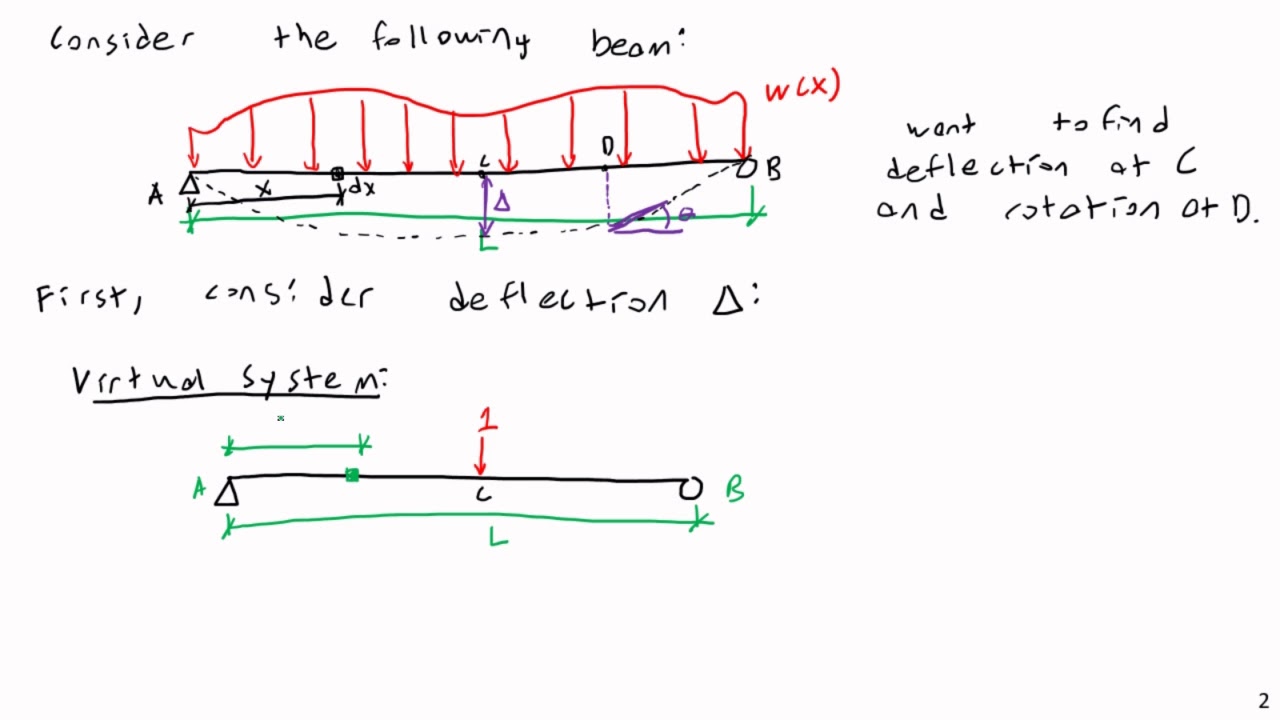 Consider the following beam:
w(x)
want to find
deflection at C
and rotation at D.
C D
A x dx Δ θ B
L
First, consider deflection Δ:
Virtual System:
1
A C B
L
2